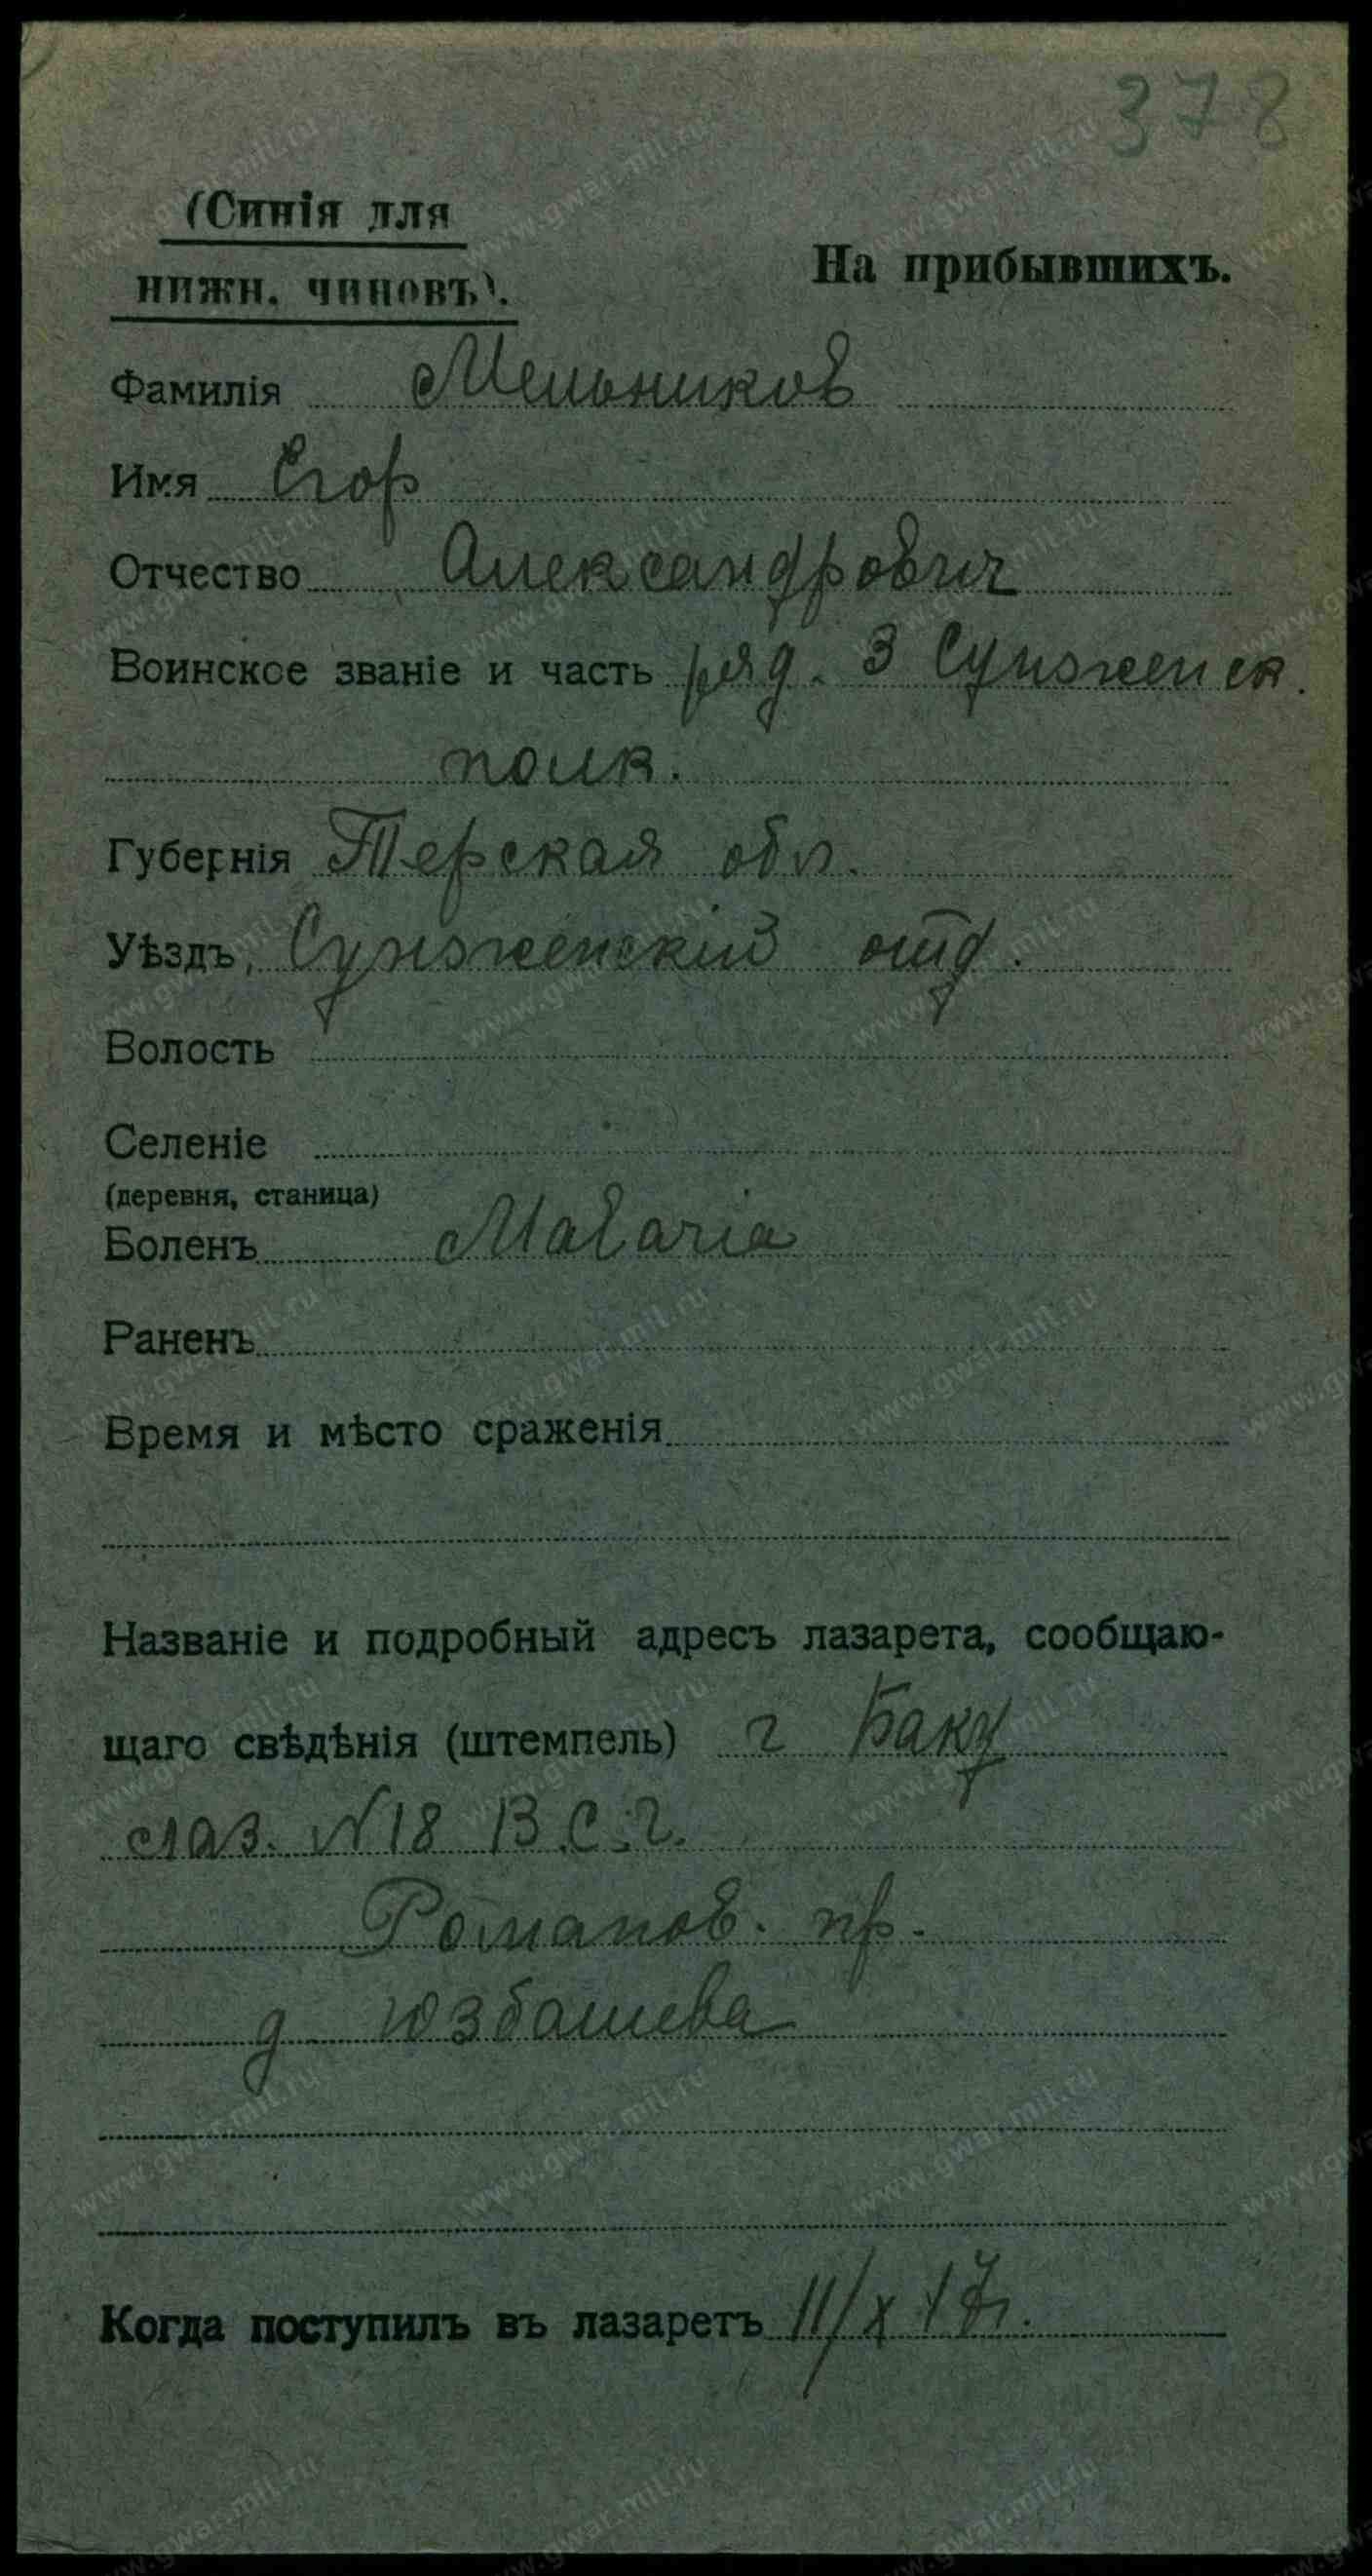 378
(Синія для
нижн. чиновъ).
На прибывшихъ.
Фамилія Мельников
Имя Егор
Отчество Александрович
Воинское званіе и часть ряд. 3 Сунженск.
полк.
Губернія Терская обл.
Уѣздъ, Сунженскій отд.
Волость
Селеніе
(деревня, станица)
Боленъ Malaria
Раненъ
Время и мѣсто сраженія
Названіе и подробный адресъ лазарета, сообщаю-
щаго свѣдѣнія (штемпель) г Баку
лаз. №18 В.С.Г.
Романов. пр.
д Юзбашева
Когда поступилъ въ лазаретъ 11/X 17г.
www.gwar.mil.ru